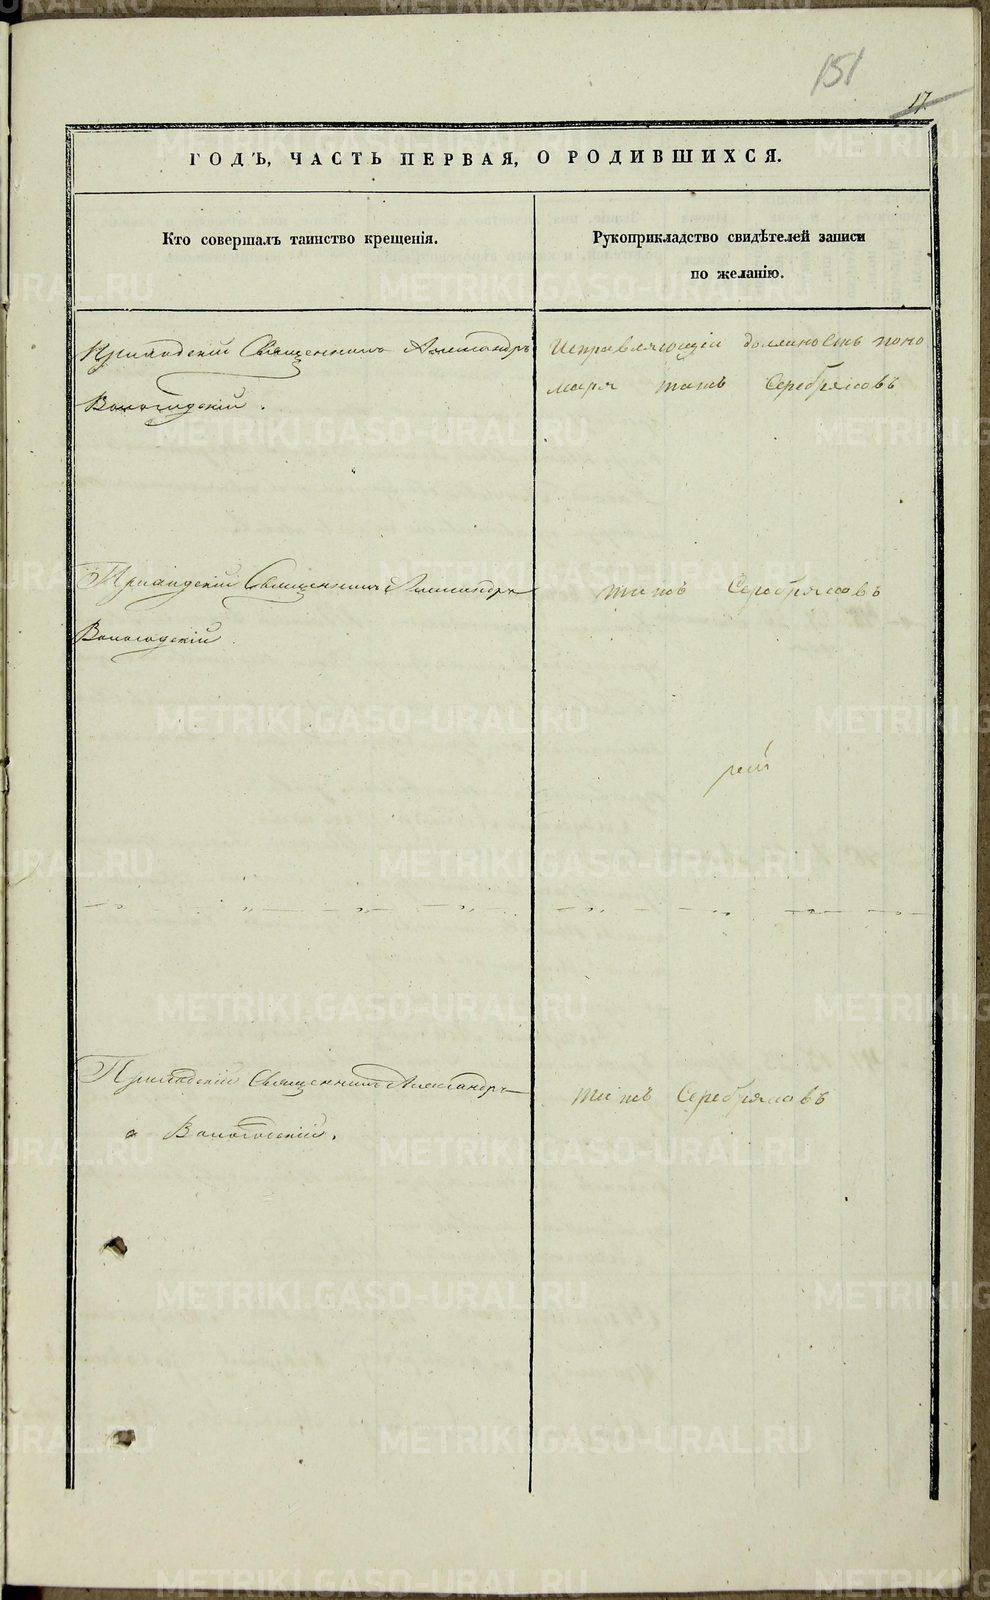 151
17
ГОДЪ, ЧАСТЬ ПЕРВАЯ, О РОДИВШИХСЯ.
Кто совершалъ таинство крещенія.
Рукоприкладство свидѣтелей записи
по желанію.
Приходскій Священникъ Александръ
Вологодскій.
Исправляющій должность поно
маря Серебряковъ
Приходскій Священникъ Александръ
Вологодскій
Серебряковъ
Приходскій Священникъ Александръ
Вологодскій.
Серебряковъ
METRIKI.GASO-URAL.RU